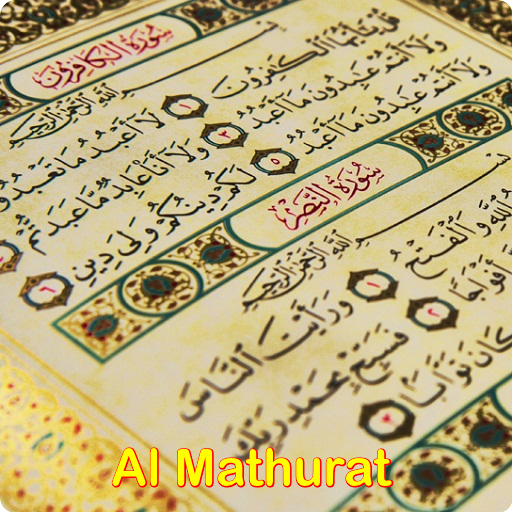 سُورَةُ الْكَافِرُونَ
بِسْمِ اللَّهِ الرَّحْمَٰنِ الرَّحِيمِ
قُلْ يَٰٓأَيُّهَا الْكَٰفِرُونَ ١ لَآ أَعْبُدُ مَا تَعْبُدُونَ
وَلَآ أَنتُمْ عَٰبِدُونَ مَآ أَعْبُدُ ٣ وَلَآ أَنَا۠ عَابِدٌ مَّا عَبَدتُّمْ
وَلَآ أَنتُمْ عَٰبِدُونَ مَآ أَعْبُدُ ٥ لَكُمْ دِينُكُمْ وَلِيَ دِينِ ٦
سُورَةُ النَّصْرِ
بِسْمِ اللَّهِ الرَّحْمَٰنِ الرَّحِيمِ
اللَّهِ وَالْفَتْحُ ١ وَرَأَيْتَ النَّاسَ
أَفْوَاجًا ٢ فَسَبِّحْ بِحَمْدِ رَبِّكَ
كَانَ تَوَّابًا ٣
Al Mathurat